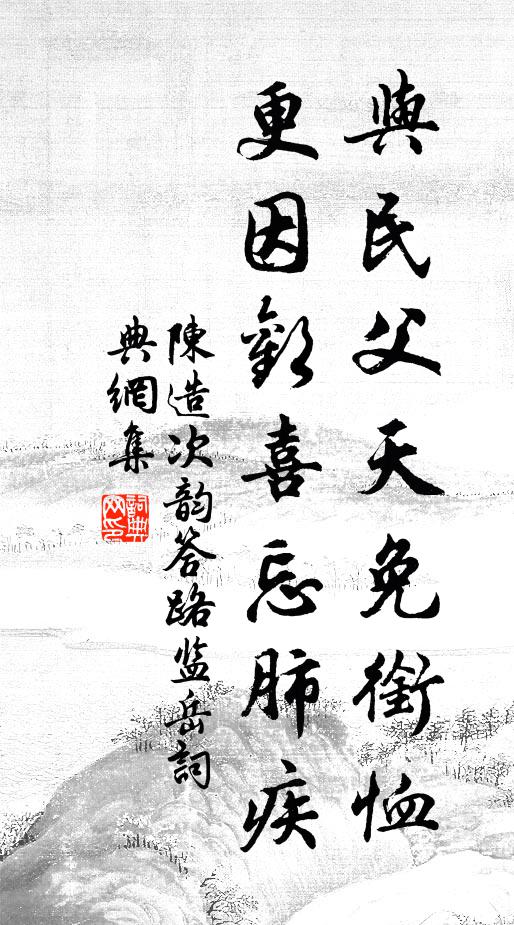 與民父天免銜恤
更因歡喜忘肺疾
陳造次韵答路监岳詞
典網集
詞典网印